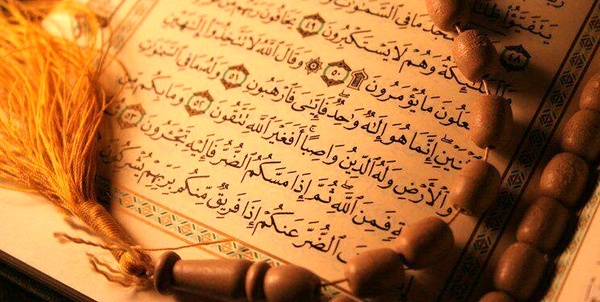 يَتَفَيَّؤُا۟
٤٨ يَسْجُدُ مَا فِى ٱلسَّمَـٰوَٰتِ
وَهُمْ لَا يَسْتَكْبِرُونَ ٤٩ يَخَافُونَ رَبَّهُم
مَا يُؤْمَرُونَ ۩ ٥٠ ۞ وَقَالَ ٱللَّهُ لَا تَتَّخِذُوٓا۟ إِلَـٰهَيْنِ
إِنَّمَا هُوَ إِلَـٰهٌ وَٰحِدٌ فَإِيَّـٰىَ فَٱرْهَبُونِ ٥١ وَلَهُۥ مَا فِى ٱلسَّمَـٰوَٰتِ
وَٱلْأَرْضِ وَلَهُ ٱلدِّينُ وَاصِبًا أَفَغَيْرَ ٱللَّهِ تَتَّقُونَ ٥٢ وَمَا بِكُم مِّن
فَمِنَ ٱللَّهِ ثُمَّ إِذَا مَسَّكُمُ ٱلضُّرُّ فَإِلَيْهِ تَجْـَٔرُونَ ٥٣
ٱلضُّرَّ عَنكُمْ إِذَا فَرِيقٌ مِّنكُم بِرَبِّهِمْ يُشْرِكُونَ